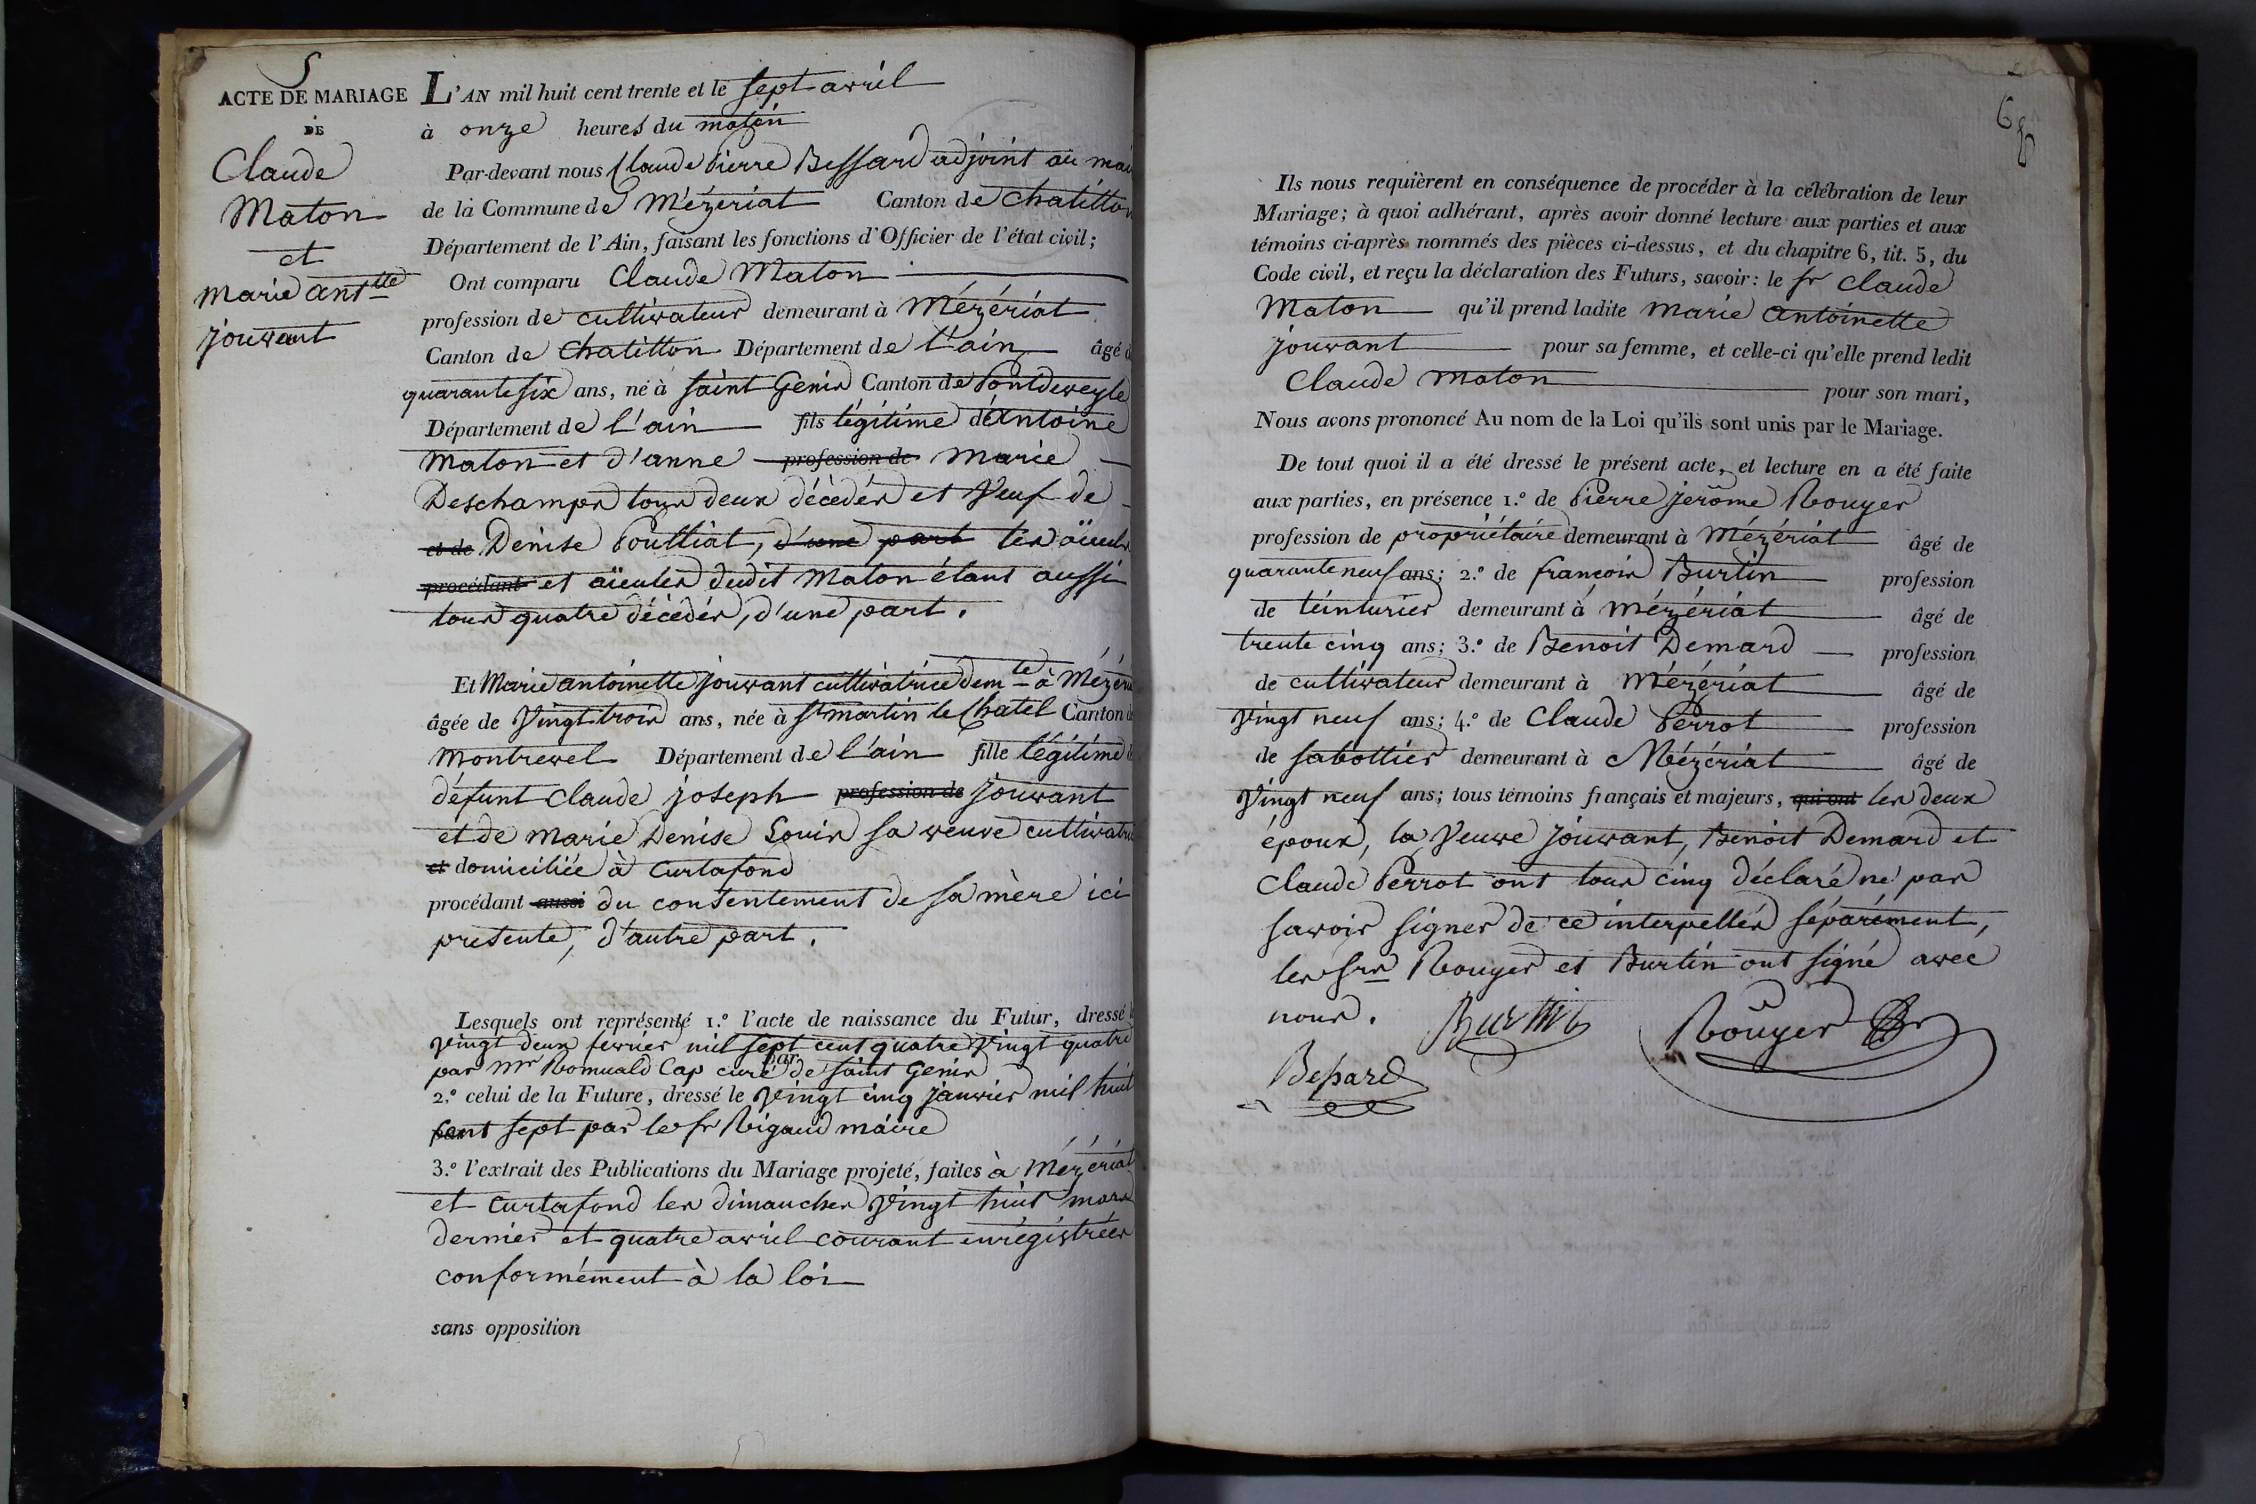 5
ACTE DE MARIAGE
DE
Claude
Maton
et
Marie Anttte
jouvant
L'AN mil huit cent trente et le sept avril
à onze heures du matin
Par-devant nous Claude Pierre Bessard adjoint au mai
de la Commune de Mézériat Canton de Chatillon
Département de l'Ain, faisant les fonctions d'Officier de l'état civil;
Ont comparu Claude Maton
profession de cultivateur demeurant à Mézériat
Canton de Chatillon Département de l'ain âgé d
quarante six ans, né à Saint Genis Canton de Pontdeveyle
Département de l'ain fils légitime d'Antoine
Maton et d'anne profession de Marie
Deschamps tous deux décédés et Veuf de
et de Denise Poulliat, d'une part les aïeuls
procédant et aïeules dudit Maton étant aussi
tous quatre décédés, d'une part.
Et Marie antoinette jouvant cultivatrice demte à Mézéria
âgée de Vingt trois ans, née à St martin le Chatel Canton d
Montrevel Département de l'ain fille légitime d
défunt Claude joseph profession de jouvant
et de Marie Denise Louis sa veuve cultivatri
et domiciliée à Curtafond
procédant aussi du consentement de sa mère ici
présente, d'autre part.
Lesquels ont représenté 1.º l'acte de naissance du Futur, dressé l
Vingt deux février mil sept cent quatre Vingt quatre
par Mr Romuald Cap curé de Saint Genis
par
2.º celui de la Future, dressé le Vingt cinq janvier mil huit
cent sept par le Sr Rigaud maire
3.º l'extrait des Publications du Mariage projeté, faites à Mézériat
et Curtafond les dimanches Vingt huit mars
dernier et quatre avril courant enrégistrées
conformément à la loi
sans opposition
6
Ils nous requièrent en conséquence de procéder à la célébration de leur
Mariage; à quoi adhérant, après avoir donné lecture aux parties et aux
témoins ci-après nommés des pièces ci-dessus, et du chapitre 6, tit. 5, du
Code civil, et reçu la déclaration des Futurs, savoir: le Sr Claude
Maton qu'il prend ladite Marie Antoinette
jouvant pour sa femme, et celle-ci qu'elle prend ledit
Claude Maton pour son mari,
Nous avons prononcé Au nom de la Loi qu'ils sont unis par le Mariage.
De tout quoi il a été dressé le présent acte, et lecture en a été faite
aux parties, en présence 1.º de Pierre jerôme Rouyer
profession de propriétaire demeurant à Mézériat âgé de
quarante neuf ans; 2.º de françois Burtin profession
de teinturier demeurant à Mézériat âgé de
trente cinq ans; 3.º de Benoit Demard profession
de cultivateur demeurant à Mézériat âgé de
Vingt neuf ans; 4.º de Claude Perrot profession
de sabottier demeurant à Mézériat âgé de
Vingt neuf ans; tous témoins français et majeurs, qui ont les deux
époux, la Veuve jouvant, Benoit Demard et
Claude Perrot ont tous cinq déclaré ne pas
savoir signer de ce interpellés séparément,
les Srs Rouyer et Burtin ont signé avec
nous.
Burtin
Rouyer
Bessard